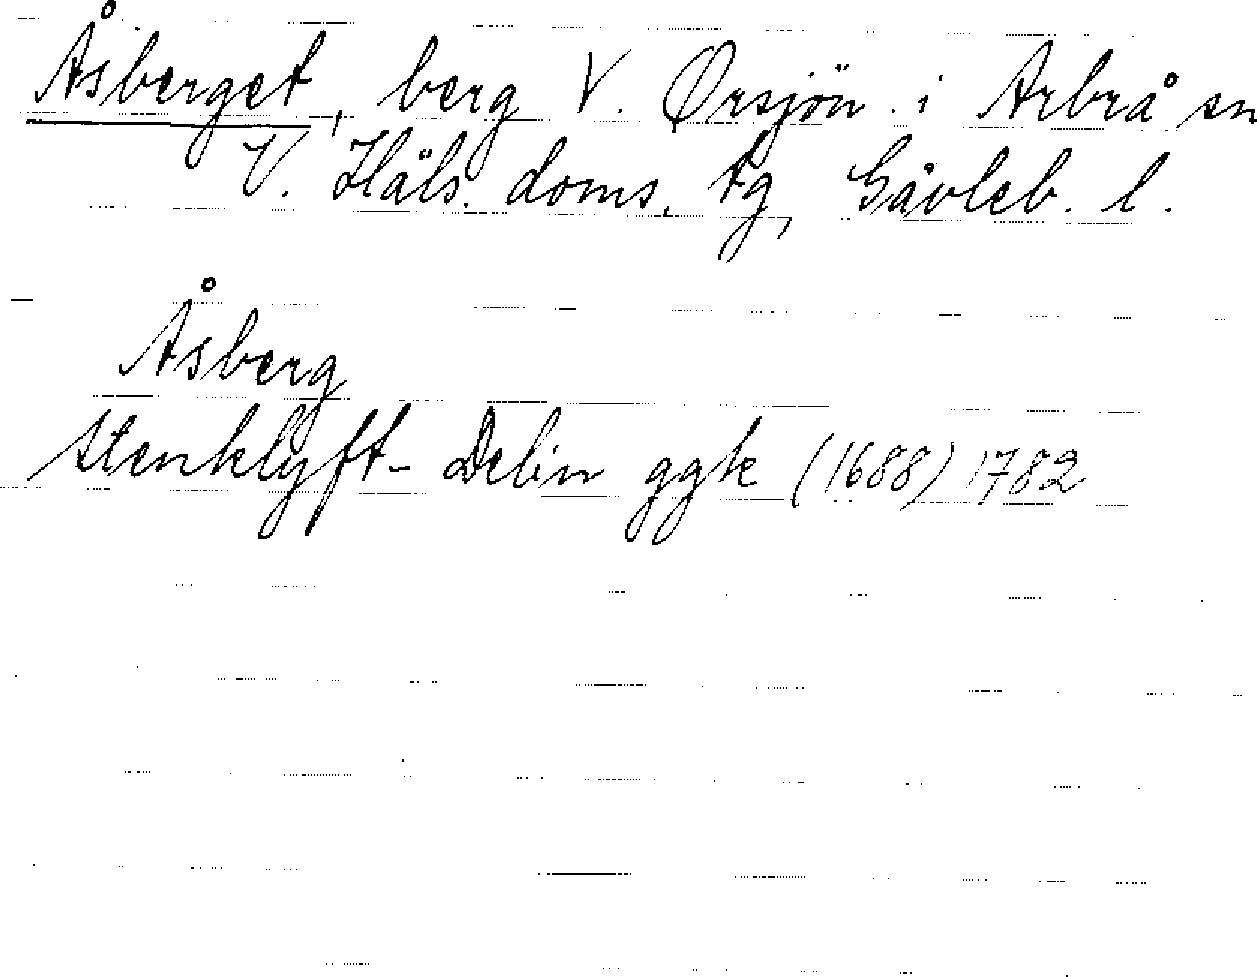 Åsberget, berg V. Ørsjön i Arbrå sn
V. Häls. doms. tg, Gävleb. l.
Åsberg
Stenklyft- Delin ggk (1688) 1782